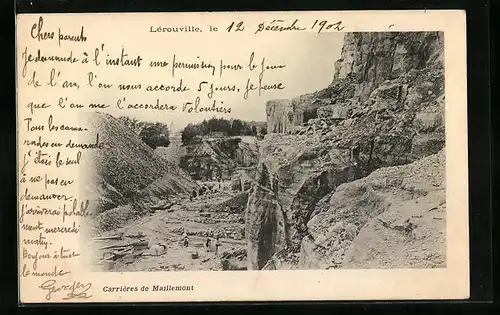 Lérouville, le 12 Décembre 1902
Chers parents
Je demande à l'instant une permission, pour le jour
de l'an, l'on nous accorde 5 jours, je pense
que l'on me l'accordera volontiers
Tous les cama-
rades en demande
j'étais le seul
à ne pas en
demander
J'arriverai probable
ment mercredi
matin.
Bonjour à tout
le monde
Georges
Carrières de Maillemont